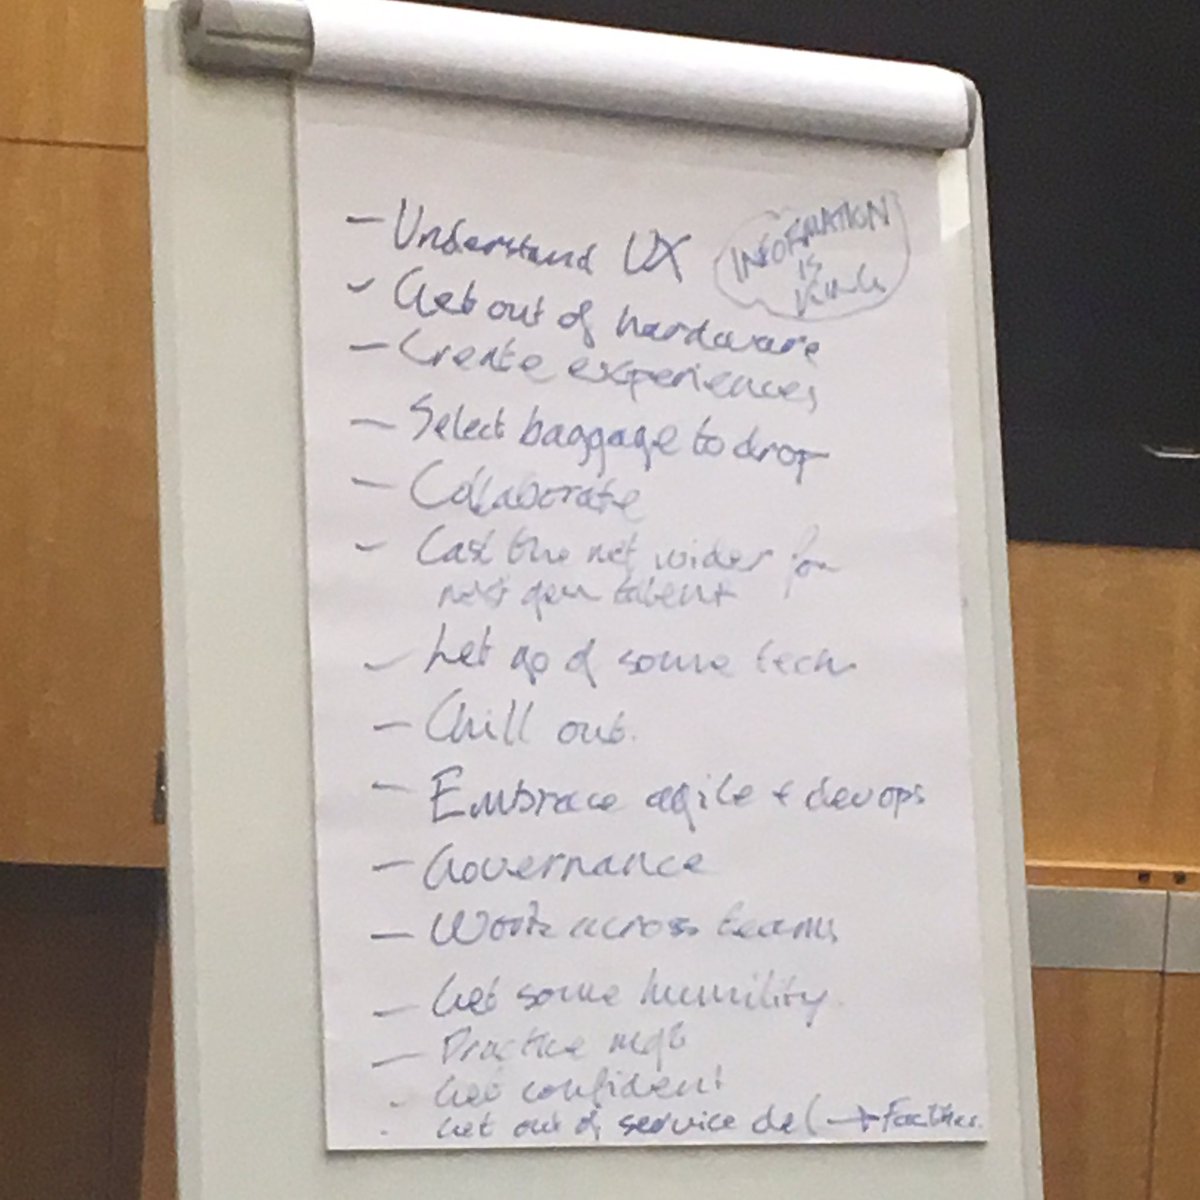 - Understand UX
INFORMATION
IS
KING
- Get out of hardware
- Create experiences
- Select baggage to drop
- Collaborate
- Cast the net wider for
next gen talent
- Let go of some tech
- Chill out.
- Embrace agile + devops
- Governance
- Work across teams
- Get some humility.
- Practice mgt
- Get confident
- Get out of service del → Facilities